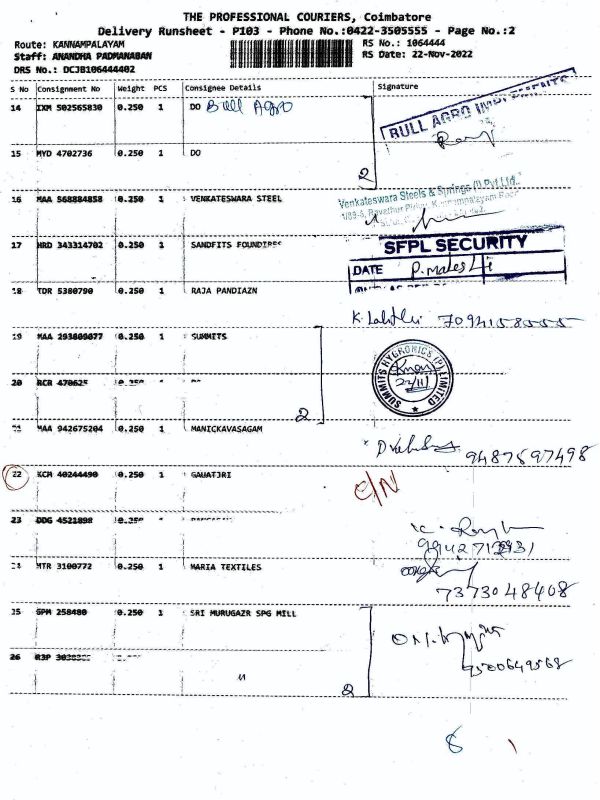 THE PROFESSIONAL COURIERS, Coimbatore
Delivery Runsheet - P103 - Phone No.:0422-3505555 - Page No.:2
Route: KANNAMPALAYAM RS No.: 1064444
Staff: ANANDHA PADMANABAN RS Date: 22-Nov-2022
DRS No.: DCJB106444402
S No Consignment No Weight PCS Consignee Details Signature
14 IXM 502565830 0.250 1 DO Bull Agro
BULL AGRO IMPLEMENTS
15 MYD 4702736 0.250 1 DO
2
16 MAA 568884858 0.250 1 VENKATESWARA STEEL
Venkateswara Steels & Springs (I) Pvt Ltd.
17 HRD 343314702 0.250 1 SANDFITS FOUNDIRES
SFPL SECURITY
DATE
18 TDR 5380790 0.250 1 RAJA PANDIAZN
19 MAA 293609077 0.250 1 SUMMITS
SUMMITS HYGRONICS (P) LIMITED
22/11
20 RCR 470625 0.250
2
21 MAA 942675204 0.250 1 MANICKAVASAGAM
9487597498
22 KCM 40244490 0.250 1 GAUATJRI
C/N
23 DDG 4521898 0.250
24 MTR 3100772 0.250 1 MARIA TEXTILES
7373048408
25 GPM 258480 0.250 1 SRI MURUGAZR SPG MILL
9500649568
26 R3P
2
8 1